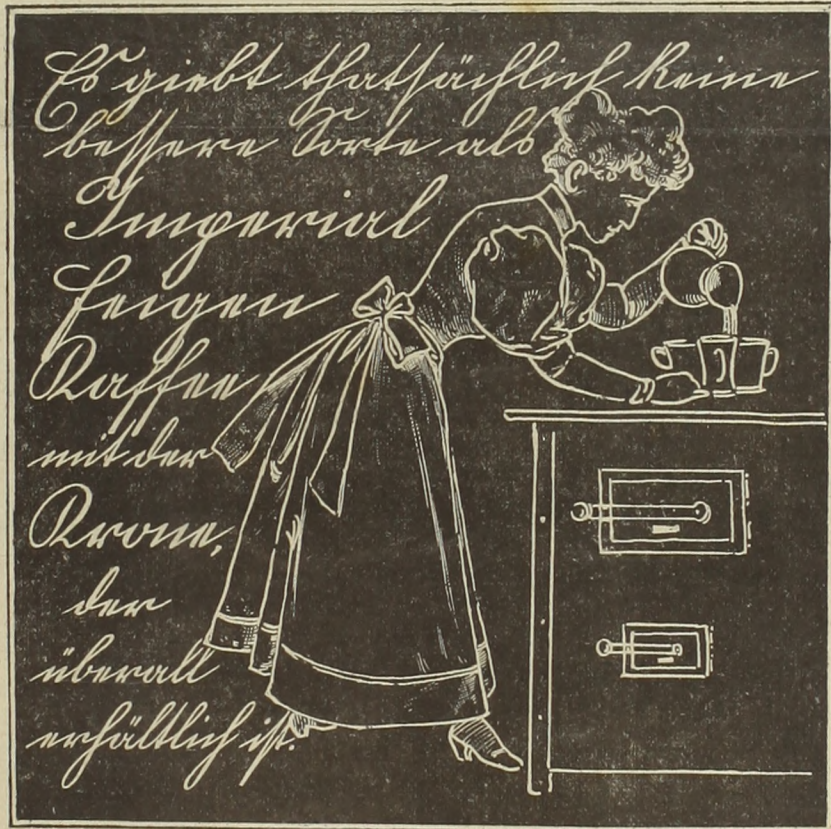 Es giebt thatsächlich keine
bessere Sorte als
Imperial
Feigen
Kaffee
mit der
Krone,
der
überall
erhältlich ist.